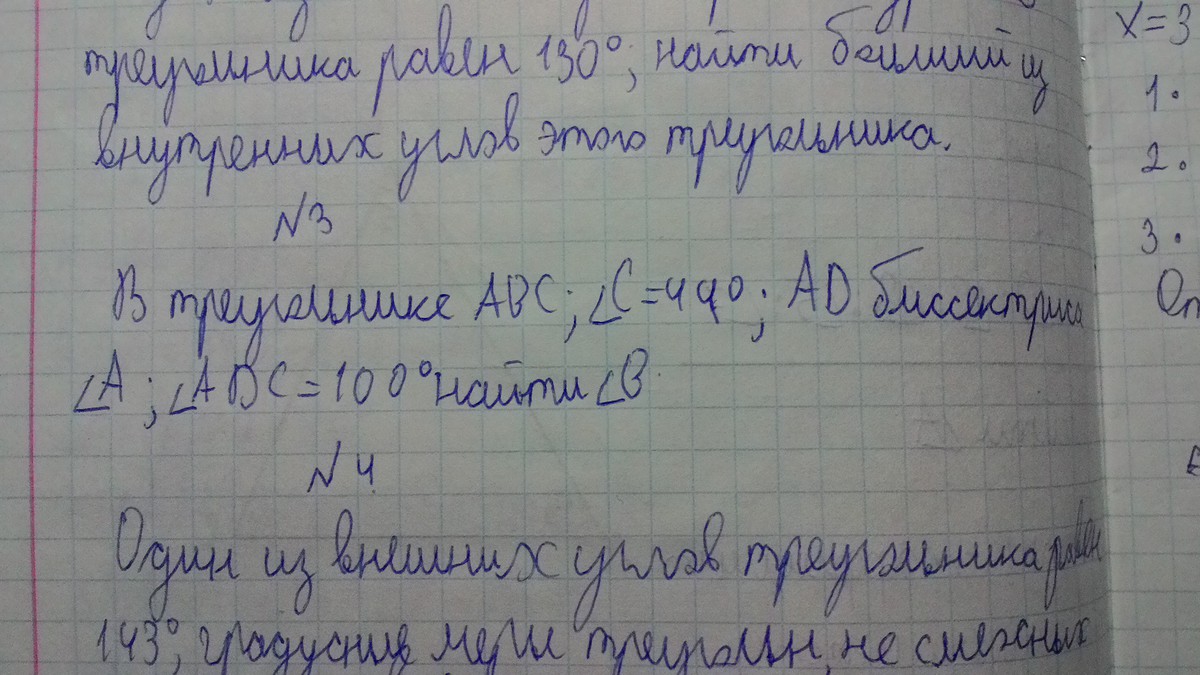 треугольника равен 130°, найти больший из
внутренних углов этого треугольника.
N3
В треугольнике ABC; ∠C=44°; AD биссектриса
∠A; ∠ADC=100° найти ∠B.
N4
Один из внешних углов треугольника равен
143°, градусные меры треугольн, не смежных
x=3
1.
2.
3.
От